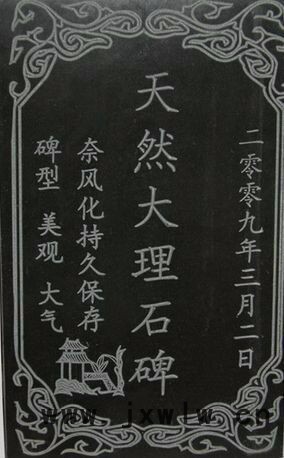 二零零九年三月二日
天然大理石碑
奈风化持久保存
碑型 美观 大气
www.jxwlw.cn